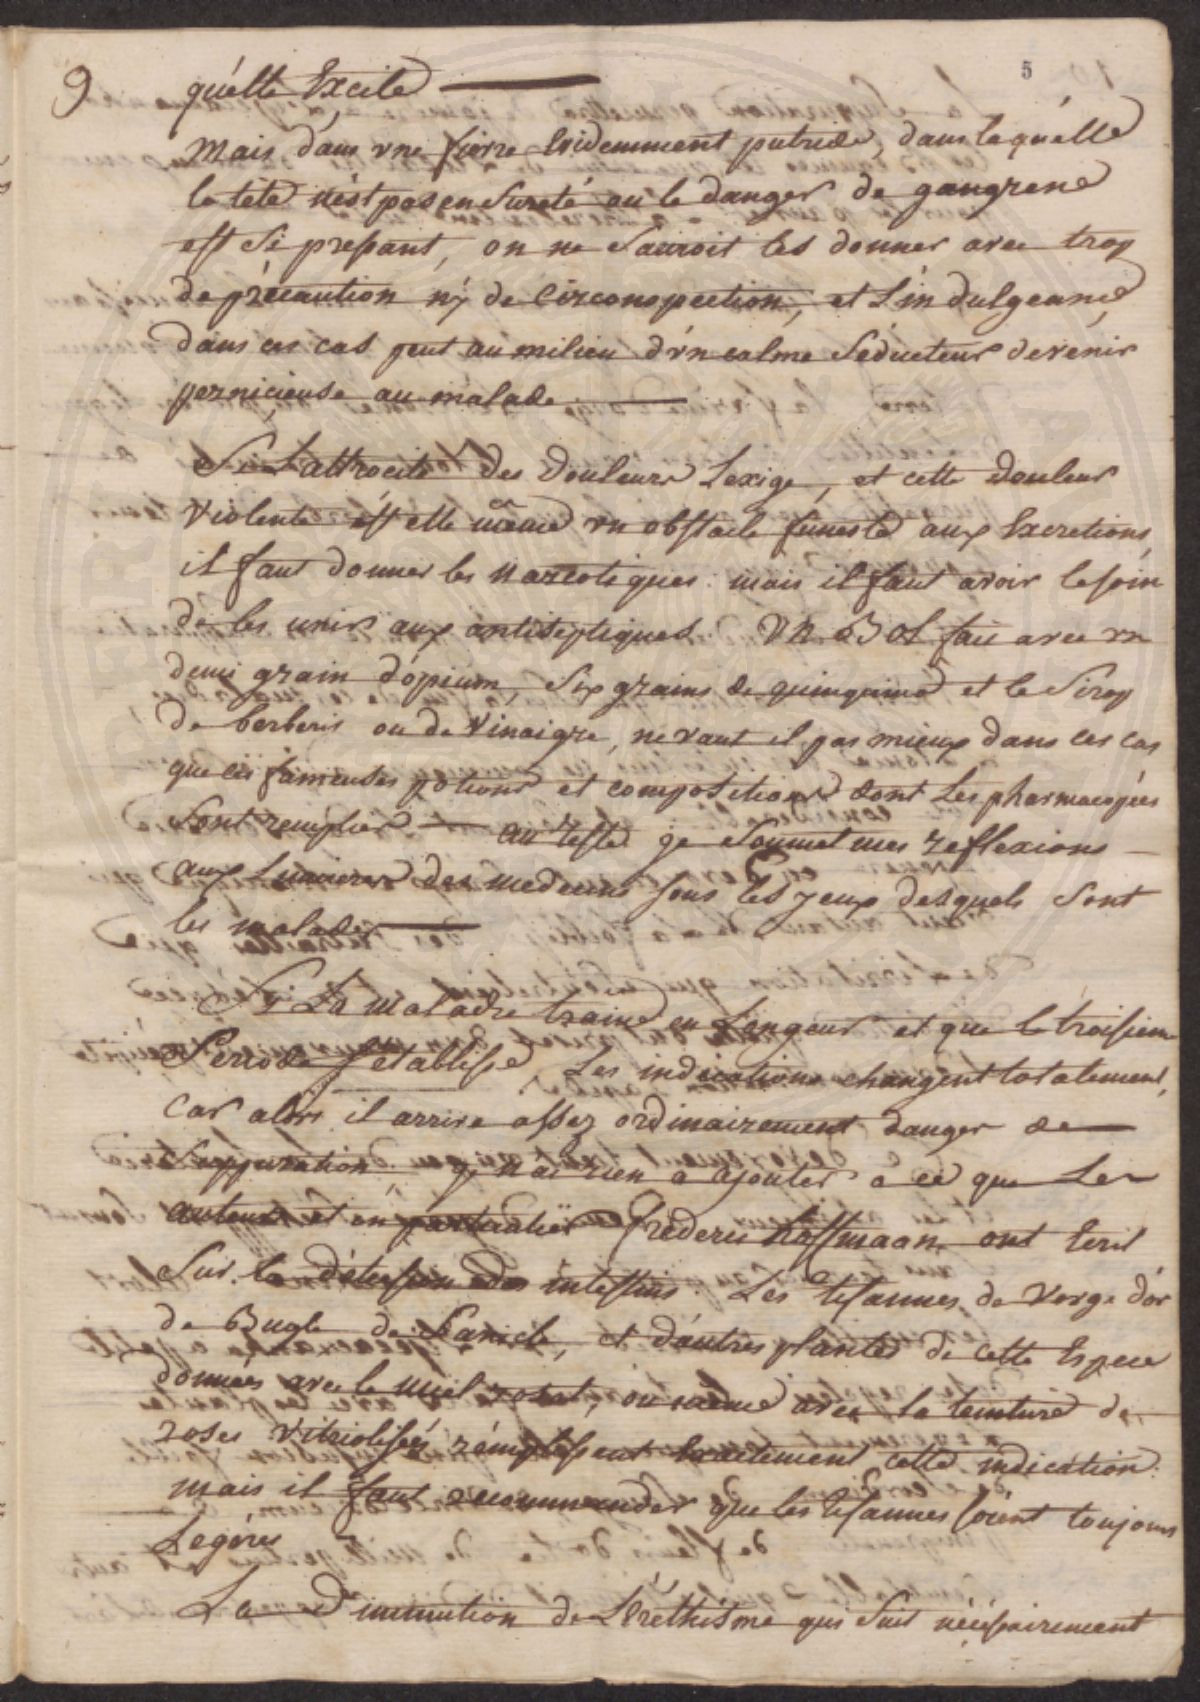 5
9 qu'elle Excite
mais dans vne fievre Evidemment putride, dans laquélle
la tête n'est pas en Sureté ou le danger de gangrene
est Si pressant, on ne Sauroit les donner avec trop
de précaution ny de Circonspection, et L'indulgeance
dans ces cas peut au milieu d'vn calme Séducteur devenir
pernicieuse au malade.
Si L'attrocité des Douleurs L'exige, et cette Douleur
violente ést elle même vn obstacle funeste aux Excretions,
il faut donner les narcotiques: mais il faut avoir le soin
de les unir aux antiseptiques. Vn Bol fait avec vn
demi grain d'opium, Six grains de quinquina et le Sirop
de berberis ou de Vinaigre, ne vaut il pas mieux dans ces cas
que ces fameuses potions et compositions dont Les pharmacopées
Sont remplies — au reste je Soumet mes reflexions
aux Lumieres des medecins sous les yeux desquels Sont
les malades
Sy La maladie traine en Langeur et que le troisieme
Periode s'etablisse, Les indications changent totalement,
Car alors il arrive assez ordinairement danger de
Suppuration. je n'ai rien a ajouter a ce que Les
auteurs et en particulier Frederic hoffmaan ont Ecrit
Sur la détersion des intestins. Les tisannes de Verge d'or
de Bugle de Sanicle, et d'autres plantes de cette Espece
données avec le miel rosat, ou même avec la teinture de
roses vitriolisée remplissent Exactement cette indication:
mais il faut recommander que les tisannes soient toujours
Legéres
La Diminution de L'éréthisme qui Suit nécéssairement